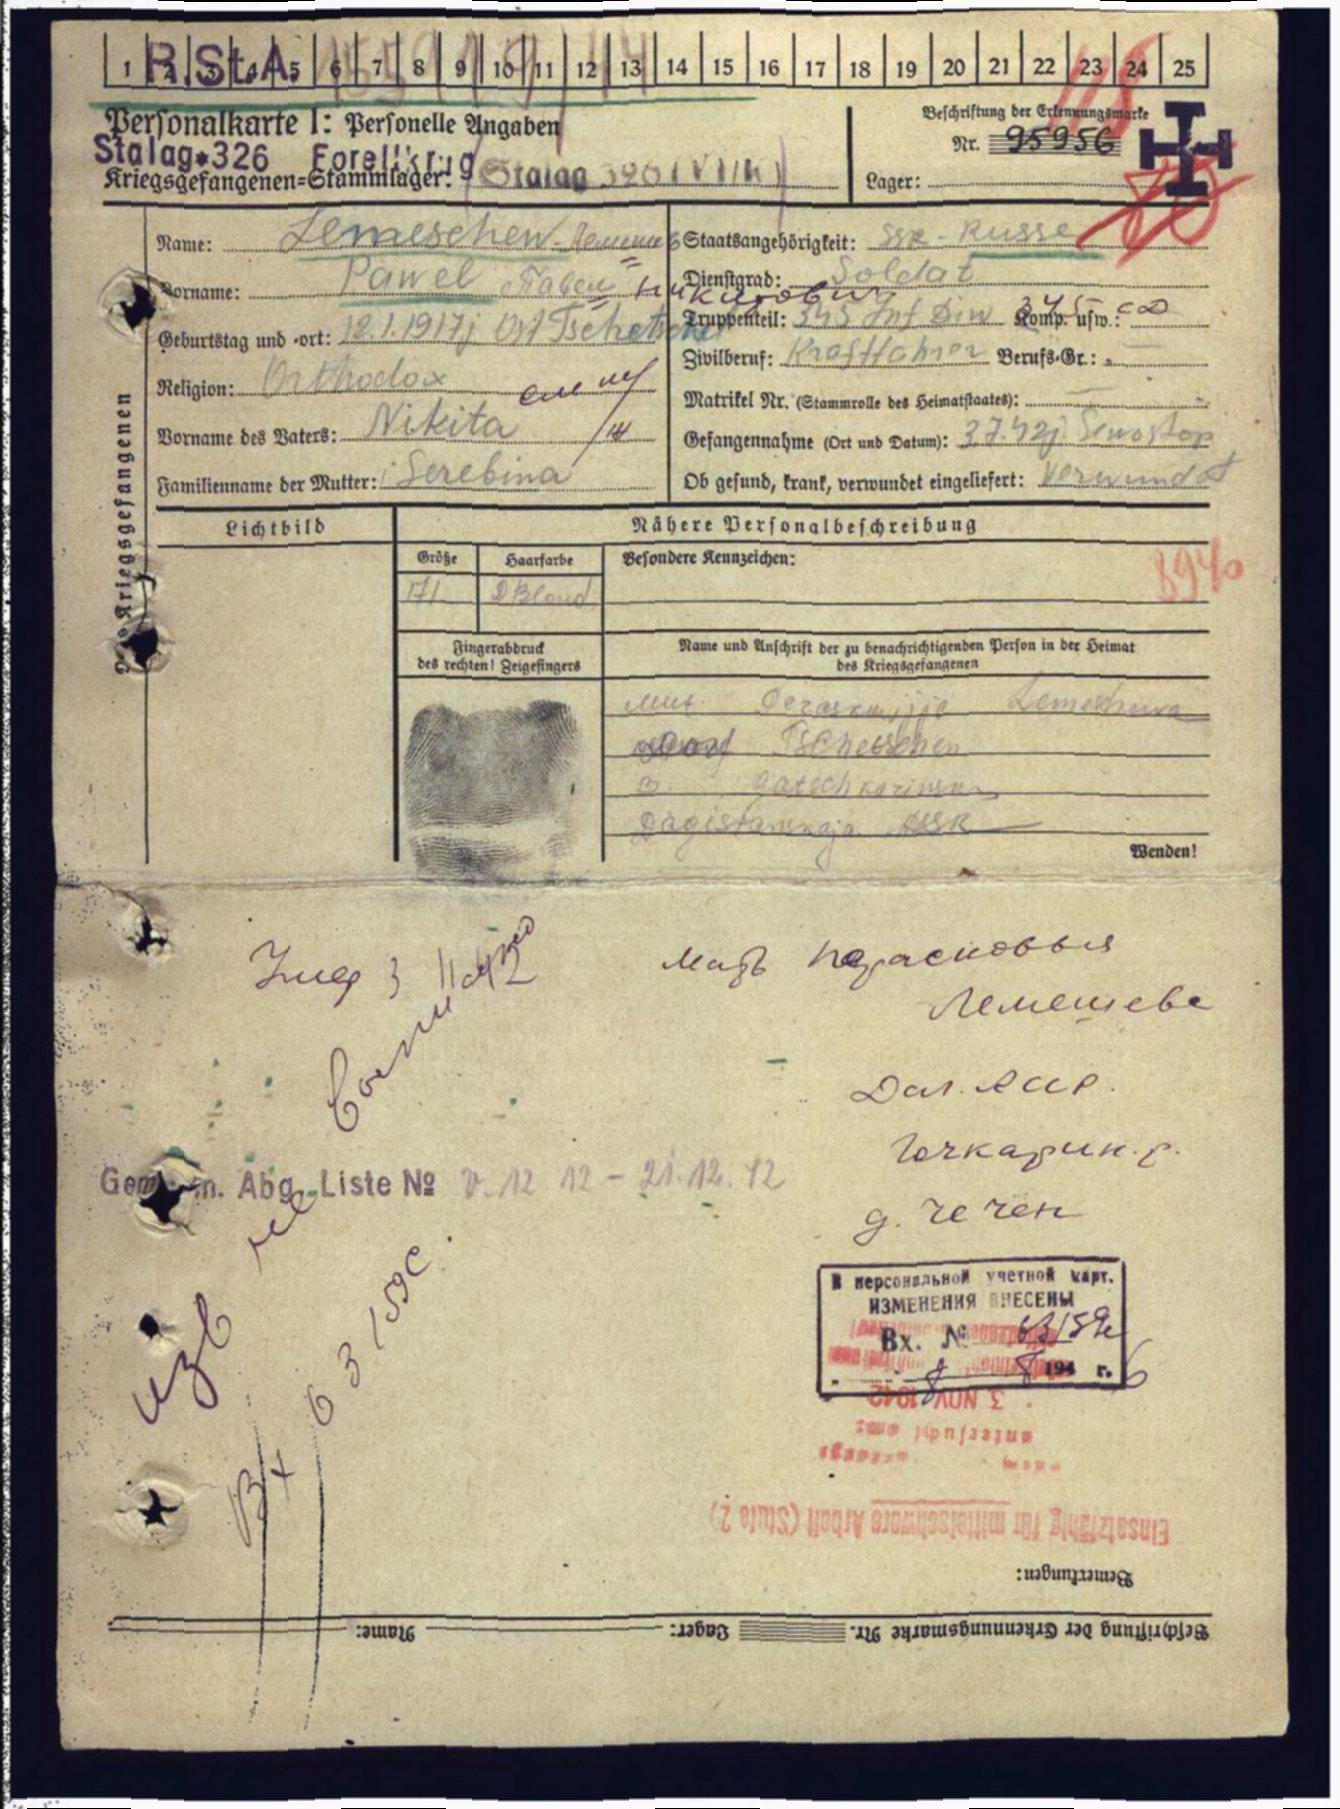 1 2 3 4 5 6 7 8 9 10 11 12 13 14 15 16 17 18 19 20 21 22 23 24 25
R.St.A.
Personalkarte I: Personelle Angaben
Beschriftung der Erkennungsmarke
Nr. 95956
Stalag 326 Forellkrug
Kriegsgefangenen-Stammlager: Stalag 326 (VI/K)
Lager:
Des Kriegsgefangenen
Name: Lemeschew
Staatsangehörigkeit: SSR - Russe
Vorname: Pawel Павел Никитович
Dienstgrad: Soldat
Geburtstag und -ort: 12.1.1917j Ort Tschetschen
Truppenteil: 345 Inf Diw Komp. usw.: 345 сд
Religion: Orthodox
Zivilberuf: Kraftfahrer Berufs-Gr.:
Matrikel Nr. (Stammrolle des Heimatstaates):
Vorname des Vaters: Nikita
Gefangennahme (Ort und Datum): 3.7.42j Sewostop
Familienname der Mutter: Serebina
Ob gesund, krank, verwundet eingeliefert: Verwundet
Lichtbild
Nähere Personalbeschreibung
Größe
Haarfarbe
Besondere Kennzeichen:
171
D Blond
8940
Fingerabdruck
des rechten! Zeigefingers
Name und Anschrift der zu benachrichtigenden Person in der Heimat
des Kriegsgefangenen
Mut. Lemeschewa
Dorf Tschetschen
Dagistanskaja ASSR
Wenden!
Мать Парасковья
Лемешева
Даг. АССР.
д. Чечен
Abg. Liste № v. 12.12 - 21.12.42
изв не
Вх 63159с.
В персональной учетной карт.
ИЗМЕНЕНИЯ ВНЕСЕНЫ
Вх. № 63159с
8 8 1946 г.
3. NOV. 1942
untersucht
Einsatzfähig für mittelschwere Arbeit (Stufe 2)
Bemerkungen:
Beschriftung der Erkennungsmarke Nr. Lager: Name: